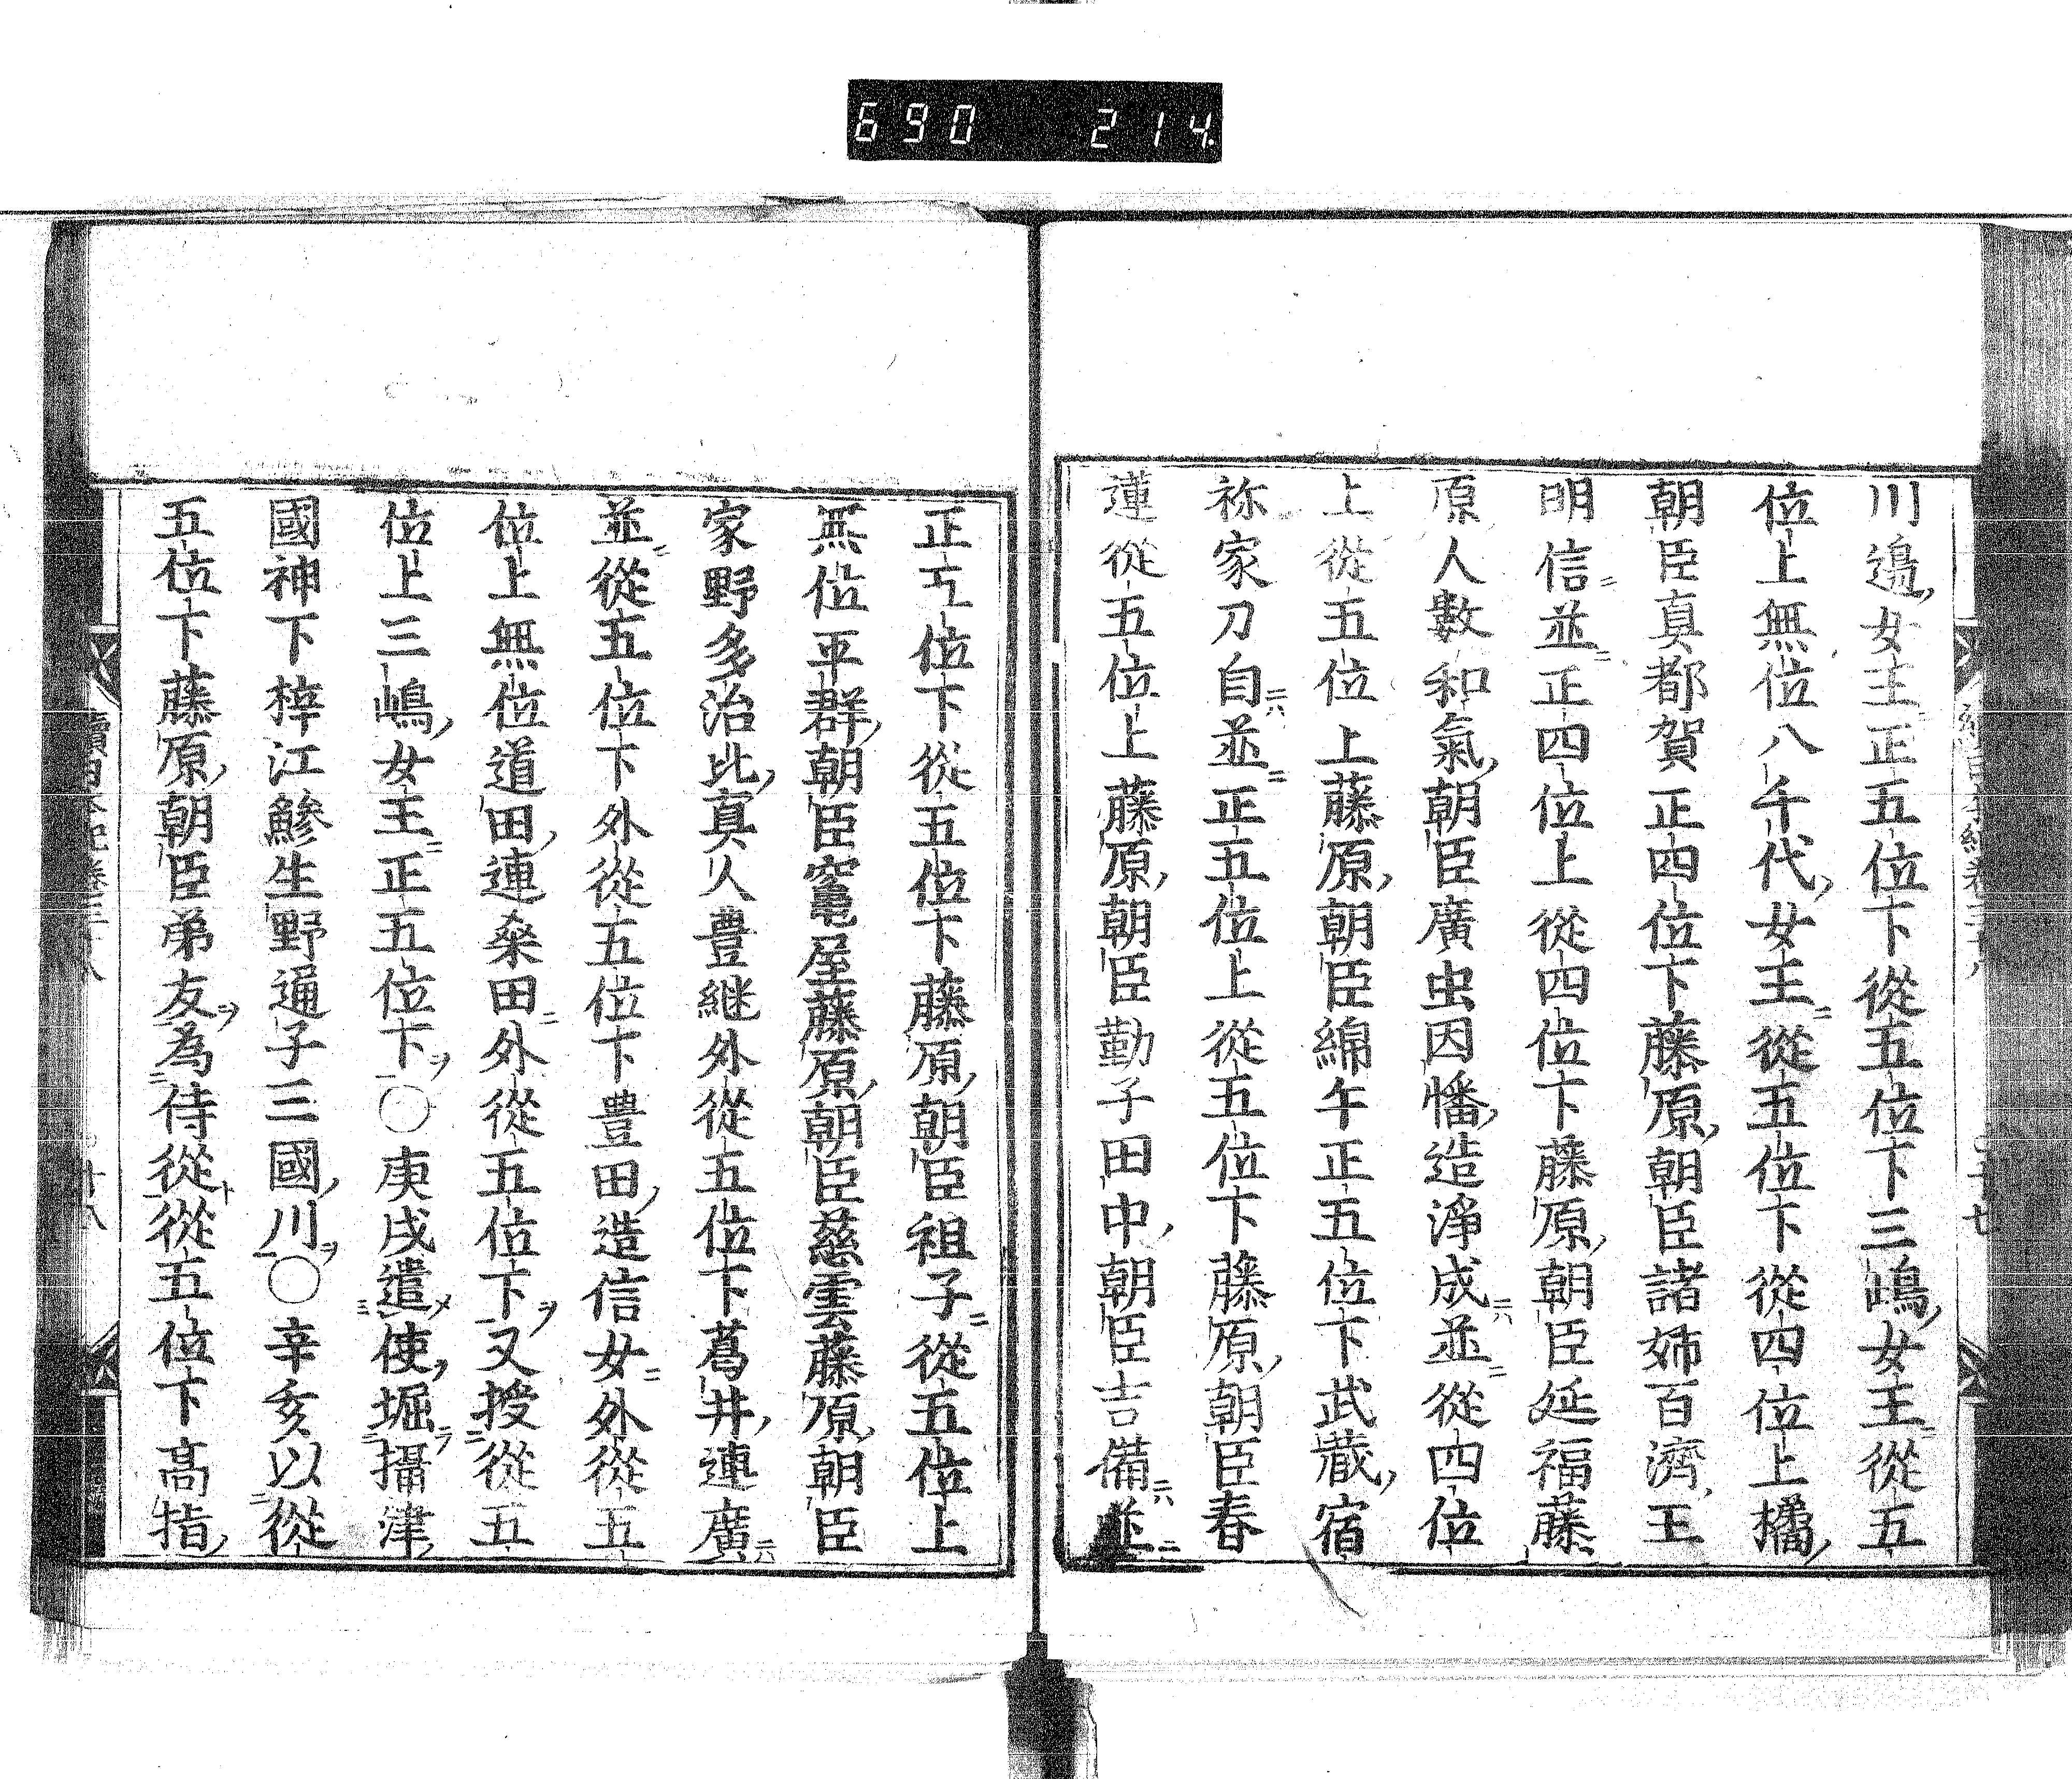 690 214
川邊女王正五位下從五位下三嶋女王從五
位上無位八千代女王從五位下從四位上橘
朝臣真都賀正四位下藤原朝臣諸姉百濟王
明信並正四位上從四位下藤原朝臣延福藤
原人數和氣朝臣廣虫因幡造淨成並從四位
上從五位上藤原朝臣綿午正五位下武藏宿
祢家刀自並正五位上從五位下藤原朝臣春
蓮從五位上藤原朝臣勤子田中朝臣吉備並
正五位下從五位下藤原朝臣祖子從五位上
無位平群朝臣竈屋藤原朝臣慈雲藤原朝臣
家野多治比真人豊継外從五位下葛井連廣
並從五位下外從五位下豊田造信女外從五
位上無位道田連桒田外從五位下又授從五
位上三嶋女王正五位下〇庚戌遣使堀攝津
國神下梓江鯵生野通子三國川〇辛亥以從
五位下藤原朝臣弟友為侍從從五位下高